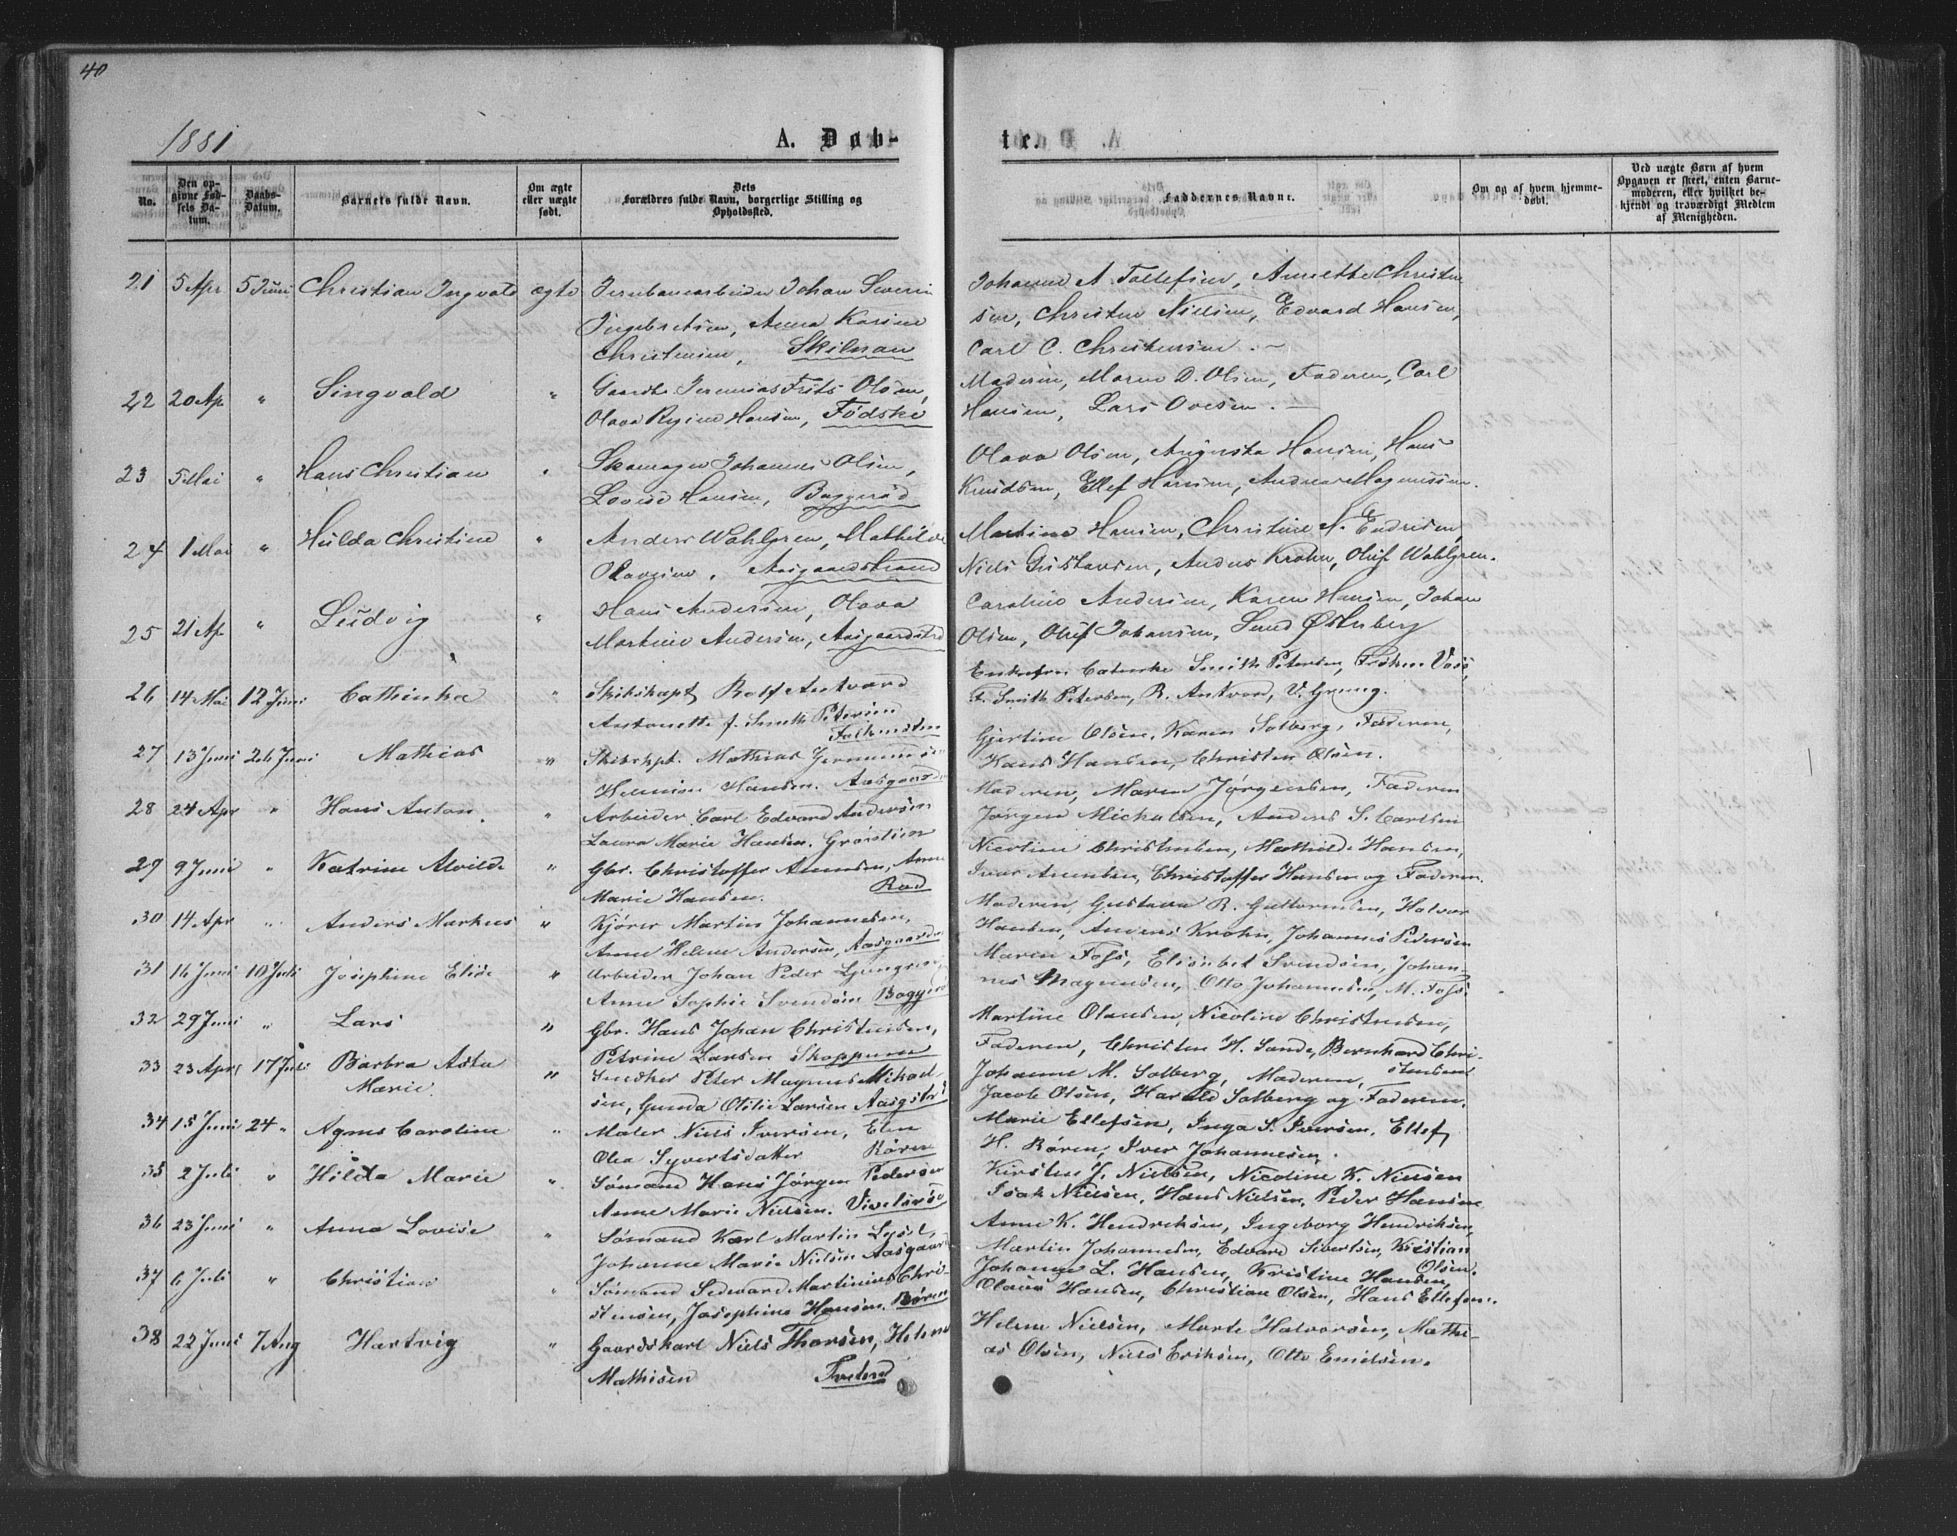 40
1881
A. Døb-
No.
Den op-
givne Fød-
sels Da-
tum.
Daabs-
Datum.
Barnets fulde Navn.
Om ægte
eller uægte
født.
Dets
Forældres fulde Navn, borgerlige Stilling og
Opholdssted.
21 5 Apr 5 Juni Christian Ingvald ægte Jernbanearbeider Johan Severin
Ingebretsen, Anna Karine
Christensen, Skilsau
22 20 Ap " Singvald " Gaardbr. Jeremias Frits Olsen,
Olava Regine Hansen, Fødske
23 5 Mai " Hans Christian " Skomager Johannes Olsen,
Lovise Hansen, Baggerød
24 1 Mai " Hulda Christine " Anders Wahlgren, Mathilde
Olavesine, Aasgaardstrand
25 21 Ap " Ludvig " Hans Andersen, Olava
Martine Andersen, Aasgaardstrd
26 14 Mai 12 Juni Cathinka " Skibskapt Rolf Antvard
Antonette f. Smith Petersen
Falkensten
27 13 Juni 26 Juni Mathias " Skibskpt. Mathias
Hansen. Aasgaard
28 24 Apr " Hans Anton. " Arbeider Carl Edvard Andersen
Laura Marie Hansen.
29 9 Juni " Katrine Alvilde " Gbr. Christoffer Amundsen, Anne
Marie Hansen. Rød
30 14 Apr " Anders Markus " Kjører Martin Johannesen,
Anne Helene Andersen, Aasgaard
31 16 Juni 10 Juli Josephine Elise " Arbeider Johan Peder
Anne Sophie Svendsen Baggerø
32 29 Juni " Lars " Gbr. Hans Johan Christensen,
Petrine Larsen Skoppum
33 23 Apr 17 Juli Barbra Asta " Snedker Peter Magnus Mikael-
Marie. sen, Gunda Otilie Larsen Aasgstr
34 15 Juni 24 " Agnes Caroline " Maler Niels Iversen, Elen
Olea Syvertsdatter Børen
35 2 Juli " Hilda Marie " Sømand Hans Jørgen Pedersen
Anne Marie Nielsen. Vivelsrø
36 23 Juni " Anna Lovise " Sømand Karl Martin
Johanne Marie Nielsen Aasgaard
37 6 Juli " Christian " Sømand Sedevard Martinius Chri-
stensen, Josephine Hansen. Børen
38 22 Juni 7 Aug Hartvig " Gaardskarl Niels Thorsen, Helene
Mathisen Tveten
te.
Faddernes Navne.
Om og af hvem hjemme-
døbt.
Ved uægte Børn af hvem
Opgaven er skeet, enten Barne-
moderen, eller hvilket be-
kjendt og troværdigt Medlem
af Menigheden.
Johanne A. Tollefsen, Annette Christen
sen, Christen Nielsen, Edvard Hansen,
Carl C. Christensen. –
Moderen, Maren D. Olsen, Faderen, Carl
Hansen, Lars Ovesen. –
Olava Olsen, Augusta Hansen, Hans
Knudsen, Ellef Hansen, Andreas Magnussen.
Martine Hansen, Christine A. Endresen
Niels Gustavsen, Anders Krohn, Oluf Wahlgren.
Caroline Andersen, Karen Hansen, Johan
Olsen, Oluf Johansen, Lund Østerberg
Enkefru Cathinka Smith Petersen, Frøken Voss,
F. Smith Petersen, R. Antvord, V. Grung.
Gjertine Olsen, Karen Solberg, Faderen,
Hans Hansen, Christen Olsen.
Moderen, Maren Jørgensen, Faderen
Jørgen Michalsen, Anders S. Carlsen
Nicoline Christensen, Mathilde Hansen,
Ivar Amundsen, Christoffer Hansen og Faderen.
Moderen, Gustava R. Guttormsen, Halvor
Hansen, Anders Krohn, Johannes Pedersen
Maren Foss, Elisabet Svendsen, Johan-
nes Magnusen, Otto Johannesen, M. Foss.
Martine Olausen, Nicoline Christensen,
Faderen, Christen H. Sande, Bernhard Chri-
stensen
Johanne M. Solberg, Moderen,
Jacob Olsen, Harald Solberg og Faderen.
Marie Ellefsen, Inga S. Iversen, Ellef
H. Børen, Iver Johannesen.
Kirsten J. Nielsen, Nicoline K. Nielsen
Isak Nielsen, Hans Nielsen, Peder Hansen
Anne K. Hendriksen, Ingeborg Hendriksen,
Martin Johannesen, Edvard Sivertsen, Kristian
Olsen.
Johanne L. Hansen, Kristine Hansen,
Olava Hansen, Christian Olsen, Hans Ellefsen.
Helene Nielsen, Marte Halvorsen, Mathi-
as Olsen, Niels Eriksen, Otto Emilsen.